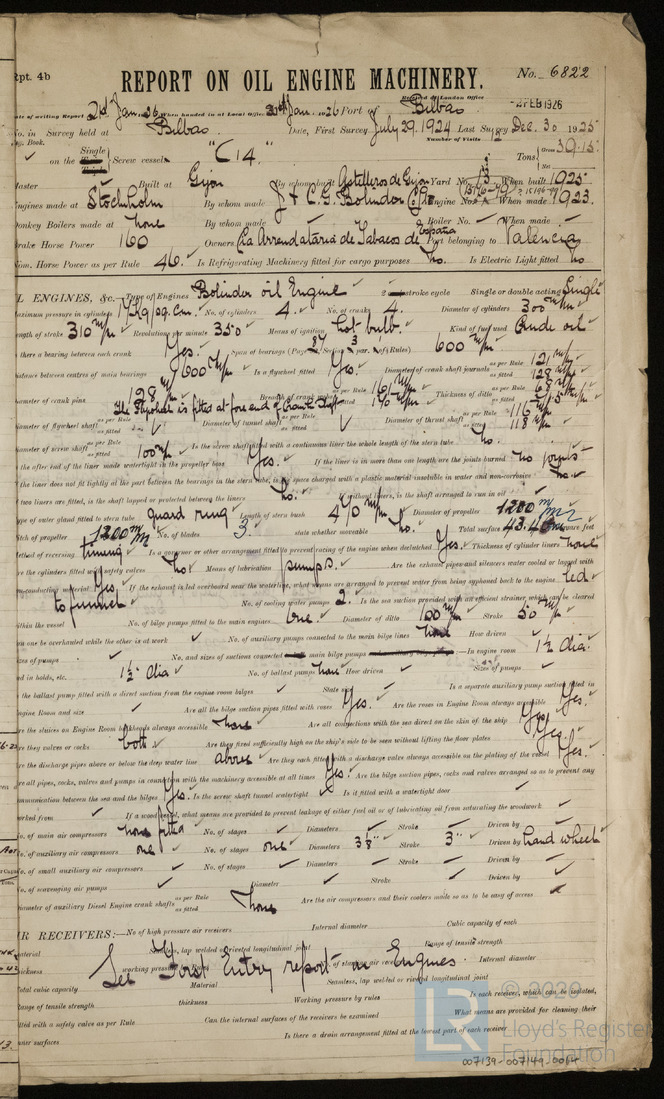 Rpt. 4b
REPORT ON OIL ENGINE MACHINERY.
No. 6822
Received at London Office
-2 FEB 1926
Date of writing Report 21st Jan. 26 When handed in at Local Office 30th Jan. 1926 Port of Bilbao
No. in Survey held at Bilbao Date, First Survey July 29. 1924 Last Survey Dec. 30 1925
Reg. Book. Number of Visits 12
✓ on the Single Screw vessel "C 14." Tons Gross 39.15
Master Built at Gijon By whom built Astilleros de Gijon Yard No. 13 When built 1925
Engines made at Stockholm By whom made J & C.G. Bolinder Engine No. When made 1923.
Donkey Boilers made at none By whom made Boiler No. When made
Brake Horse Power 160 Owners Cia Arrendataria de Tabacos de España Port belonging to Valencia
Nom. Horse Power as per Rule 46. Is Refrigerating Machinery fitted for cargo purposes No. Is Electric Light fitted no
OIL ENGINES, &c. Type of Engines Bolinder oil Engine 2 stroke cycle Single or double acting Single
Maximum pressure in cylinders No. of cylinders 4. No. of cranks 4. Diameter of cylinders 300 m/m
Length of stroke 310 m/m Revolutions per minute 350 Means of ignition hot bulb. Kind of fuel used Crude oil
Is there a bearing between each crank Yes. Span of bearings 600 m/m
Distance between centres of main bearings 600 m/m Is a flywheel fitted Yes. Diameter of crank shaft journals as per Rule as fitted
Diameter of crank pins 128 m/m Breadth of crank webs as per Rule as fitted Thickness of ditto as per Rule as fitted
The flywheel is fitted at fore end of Crank Shaft
Diameter of flywheel shaft as per Rule as fitted Diameter of tunnel shaft as per Rule as fitted Diameter of thrust shaft as per Rule 116 m/m as fitted 118 m/m
Diameter of screw shaft as per Rule as fitted 100 m/m Is the screw shaft fitted with a continuous liner the whole length of the stern tube no.
Is the after end of the liner made watertight in the propeller boss Yes. If the liner is in more than one length are the joints burned no joints
If the liner does not fit tightly at the part between the bearings in the stern tube, is the space charged with a plastic material insoluble in water and non-corrosive no
If two liners are fitted, is the shaft lapped or protected between the liners no. Without liners, is the shaft arranged to run in oil
Type of outer gland fitted to stern tube guard ring Length of stern bush 470 m/m Diameter of propeller 1200 m/m
Pitch of propeller 1200 m/m No. of blades 3. state whether moveable no. Total surface square feet
Method of reversing timing Is a governor or other arrangement fitted to prevent racing of the engine when declutched Yes. Thickness of cylinder liners none
Are the cylinders fitted with safety valves no Means of lubrication pumps. Are the exhaust pipes and silencers water cooled or lagged with
non-conducting material Yes If the exhaust is led overboard near the waterline, what means are arranged to prevent water from being syphoned back to the engine led
to funnel No. of cooling water pumps 2. Is the sea suction provided with an efficient strainer which can be cleared
within the vessel No. of bilge pumps fitted to the main engines One. Diameter of ditto 100 m/m Stroke 50 m/m
Can one be overhauled while the other is at work No. of auxiliary pumps connected to the main bilge lines none How driven
Sizes of pumps No. and sizes of suctions connected main bilge pumps —In engine room 1½ dia.
and in holds, etc. 1½ dia No. of ballast pumps none How driven Sizes of pumps
Is the ballast pump fitted with a direct suction from the engine room bilges State size Is a separate auxiliary pump suction fitted in
Engine Room and size Are all the bilge pipes fitted with roses Yes. Are the roses in Engine Room always accessible Yes.
Are the sluices on Engine Room bulkheads always accessible none Are all connections with the sea direct on the skin of the ship Yes
Are they valves or cocks both Are they fixed sufficiently high on the ship's side to be seen without lifting the floor plates Yes.
Are the discharge pipes above or below the deep water line above Are they each fitted with a discharge valve always accessible on the plating of the vessel Yes.
Are all pipes, cocks, valves and pumps in connection with the machinery accessible at all times Yes. Are the bilge suction pipes, cocks and valves arranged so as to prevent any
communication between the sea and the bilges Yes. Is the screw shaft tunnel watertight Is it fitted with a watertight door
worked from If a wood vessel, what means are provided to prevent leakage of either fuel oil or of lubricating oil from saturating the woodwork
No. of main air compressors none fitted No. of stages Diameters Stroke Driven by
No. of auxiliary air compressors one No. of stages one Diameters Stroke 3" Driven by hand wheel
No. of small auxiliary air compressors No. of stages Diameters Stroke Driven by
No. of scavenging air pumps Diameter Stroke
Diameter of auxiliary Diesel Engine crank shafts as per Rule as fitted none Are the air compressors and their coolers made so as to be easy of access
AIR RECEIVERS:—No. of high pressure air receivers Internal diameter Cubic capacity of each
material Seamless, lap welded or riveted longitudinal joint Range of tensile strength
thickness working pressure No. of starting air receivers Internal diameter
See First Entry report on Engines.
Total cubic capacity Material Seamless, lap welded or riveted longitudinal joint
Range of tensile strength thickness Working pressure by rules Is each receiver, which can be isolated,
fitted with a safety valve as per Rule Can the internal surfaces of the receivers be examined What means are provided for cleaning their
inner surfaces Is there a drain arrangement fitted at the lowest part of each receiver
LR
© 2020
Lloyd's Register
Foundation
007139-007149-0064